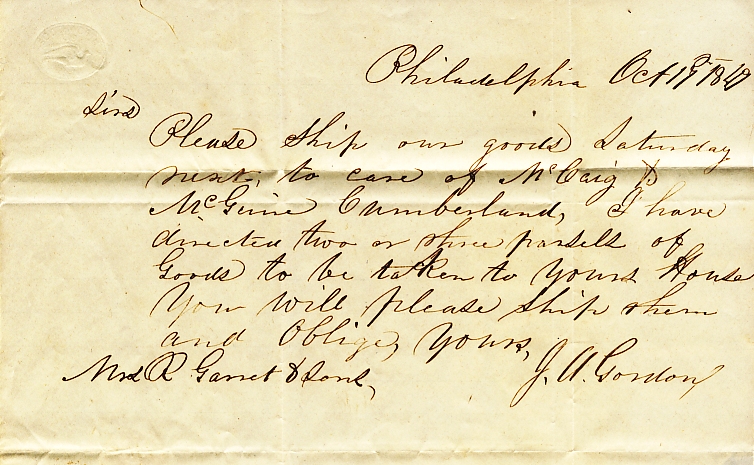 Philadelphia Oct 17th 1840
Sirs
Please ship our goods Saturday
next, to care of McCaig &
McGuire Cumberland, I have
directed two or three parsells of
Goods to be taken to yours House
you will please ship them
and Oblige, yours,
Mrs R Garret & Sons, J. A. Gordon